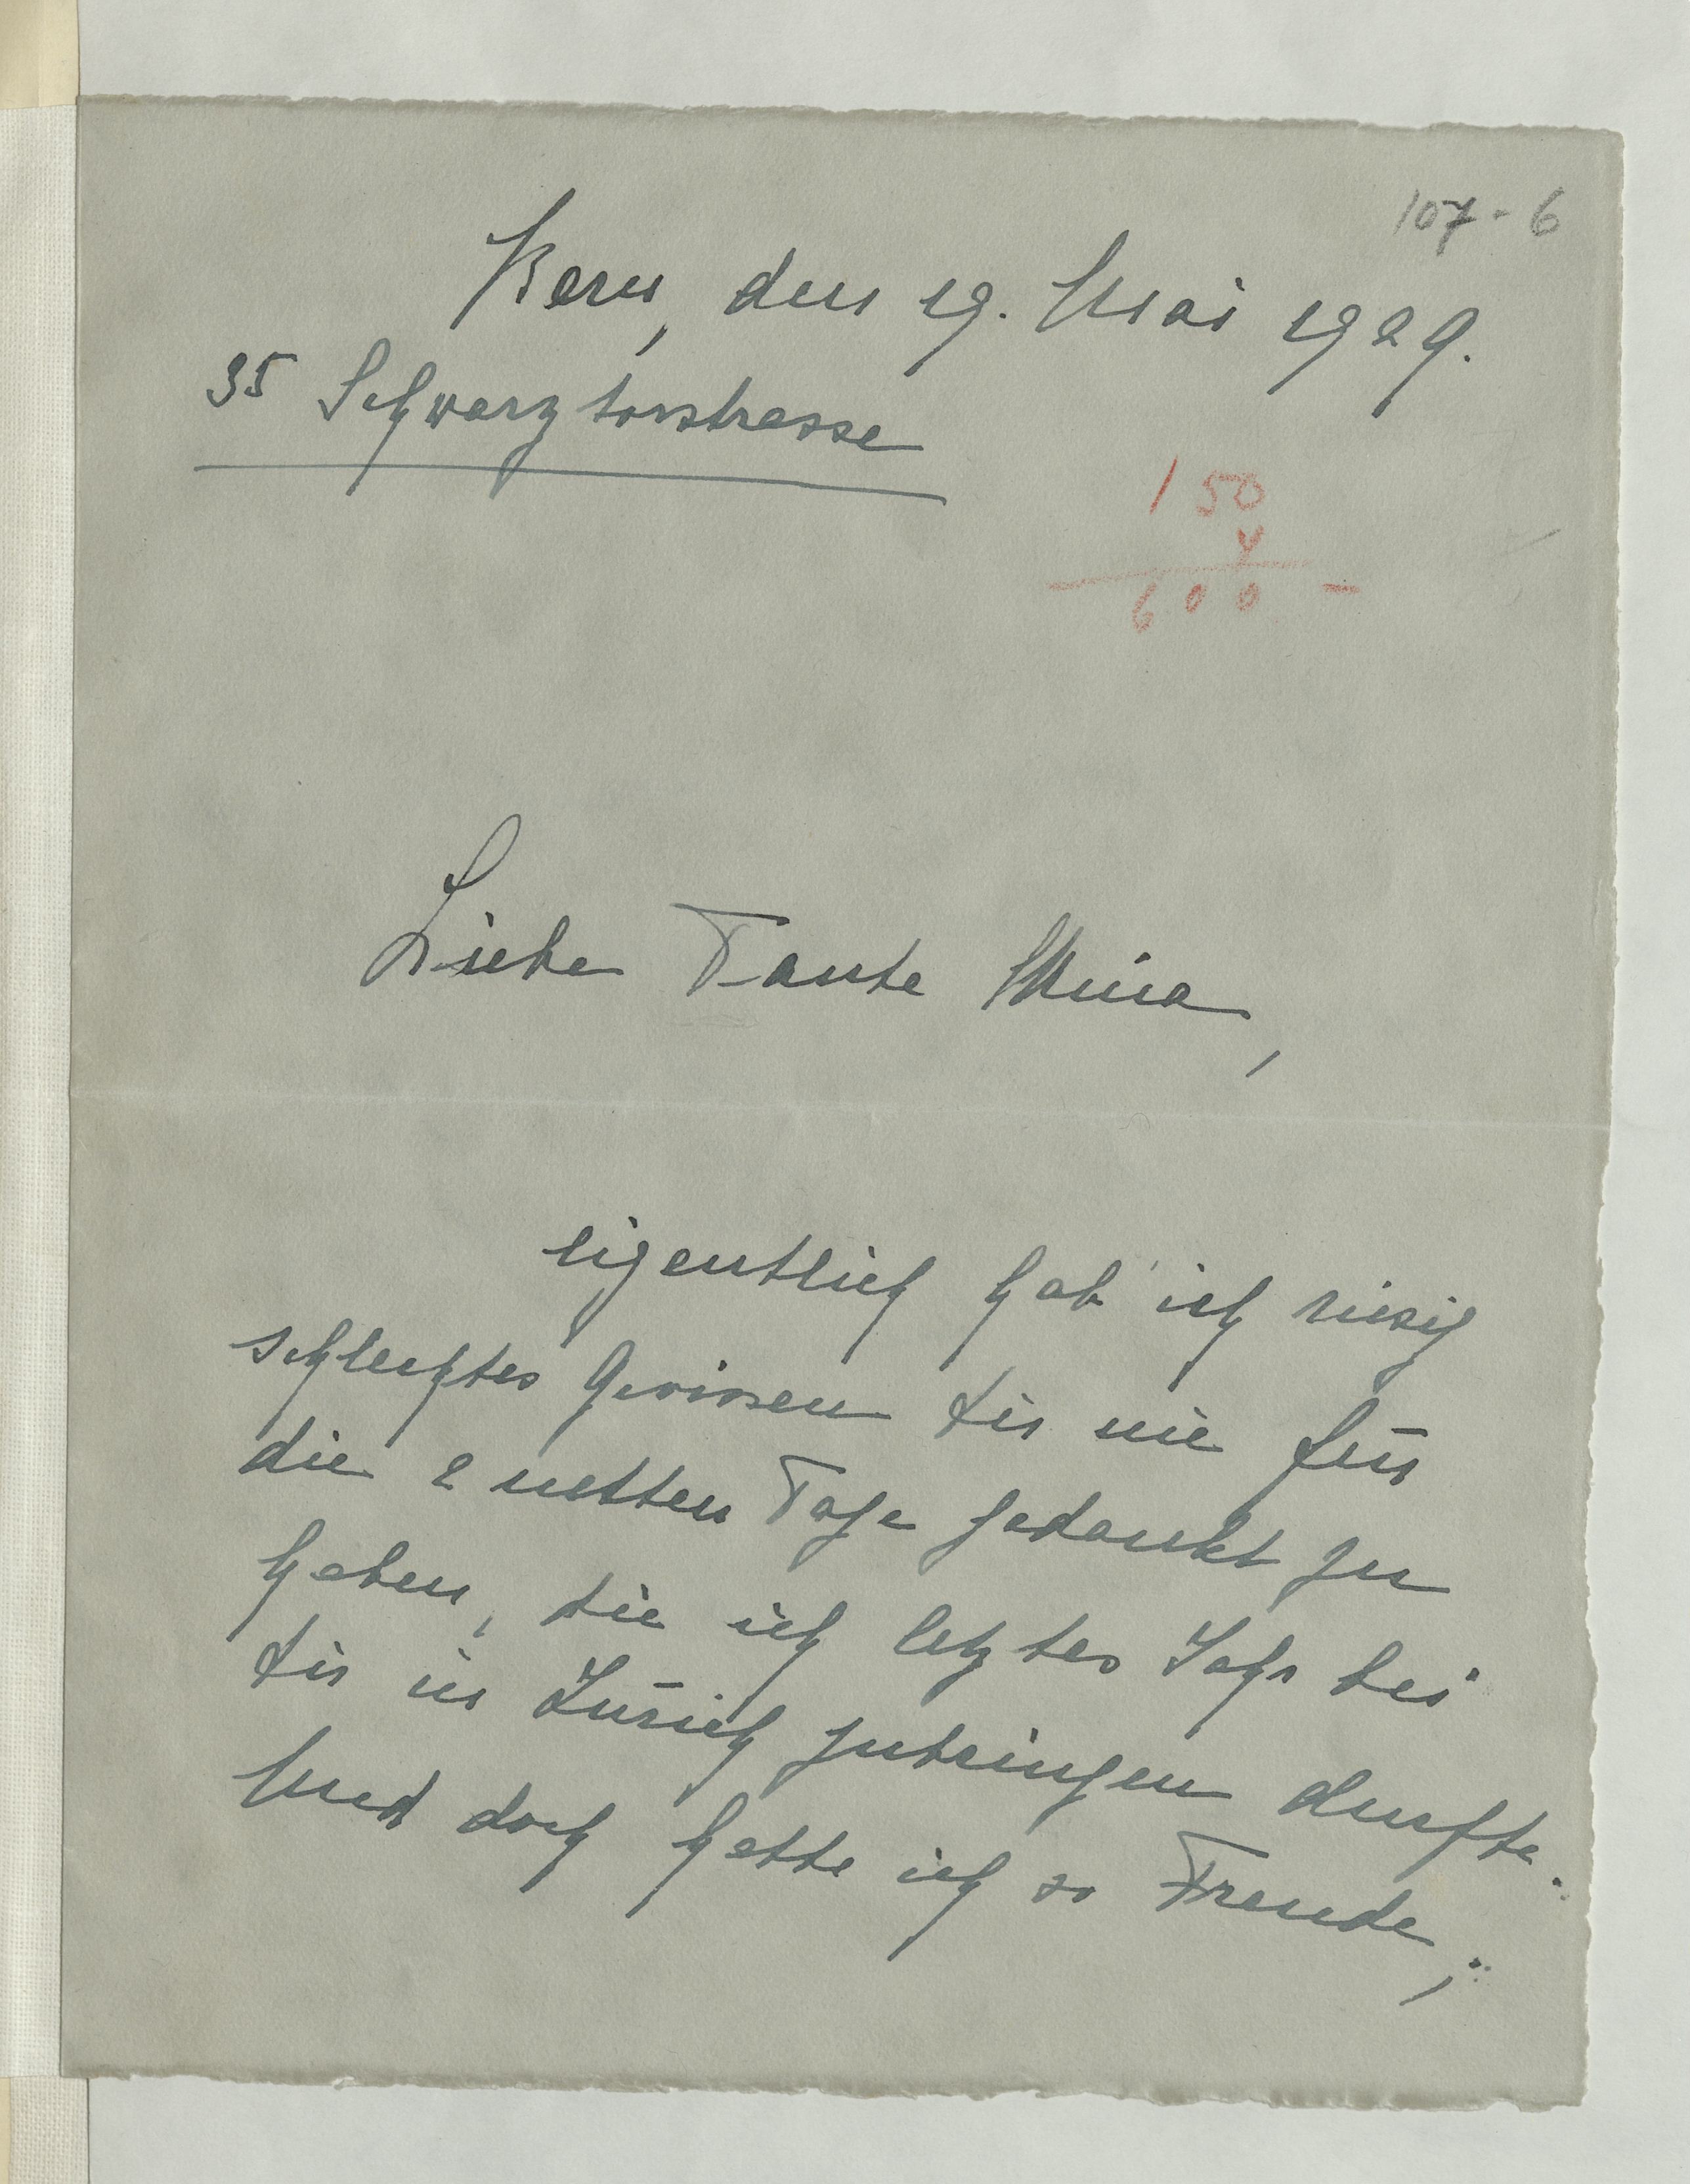 107-6
Bern, den 19. Mai 1929.
35 Schwarztorstrasse
150
4
600 -
Liebe Tante Mina,
eigentlich hab' ich riesig
schlechtes Gewissen dir nie für
die 2 netten Tage gedankt zu
haben, die ich letztes Jahr bei
dir in Zürich zubringen durfte.
Und doch hatte ich so Freude,